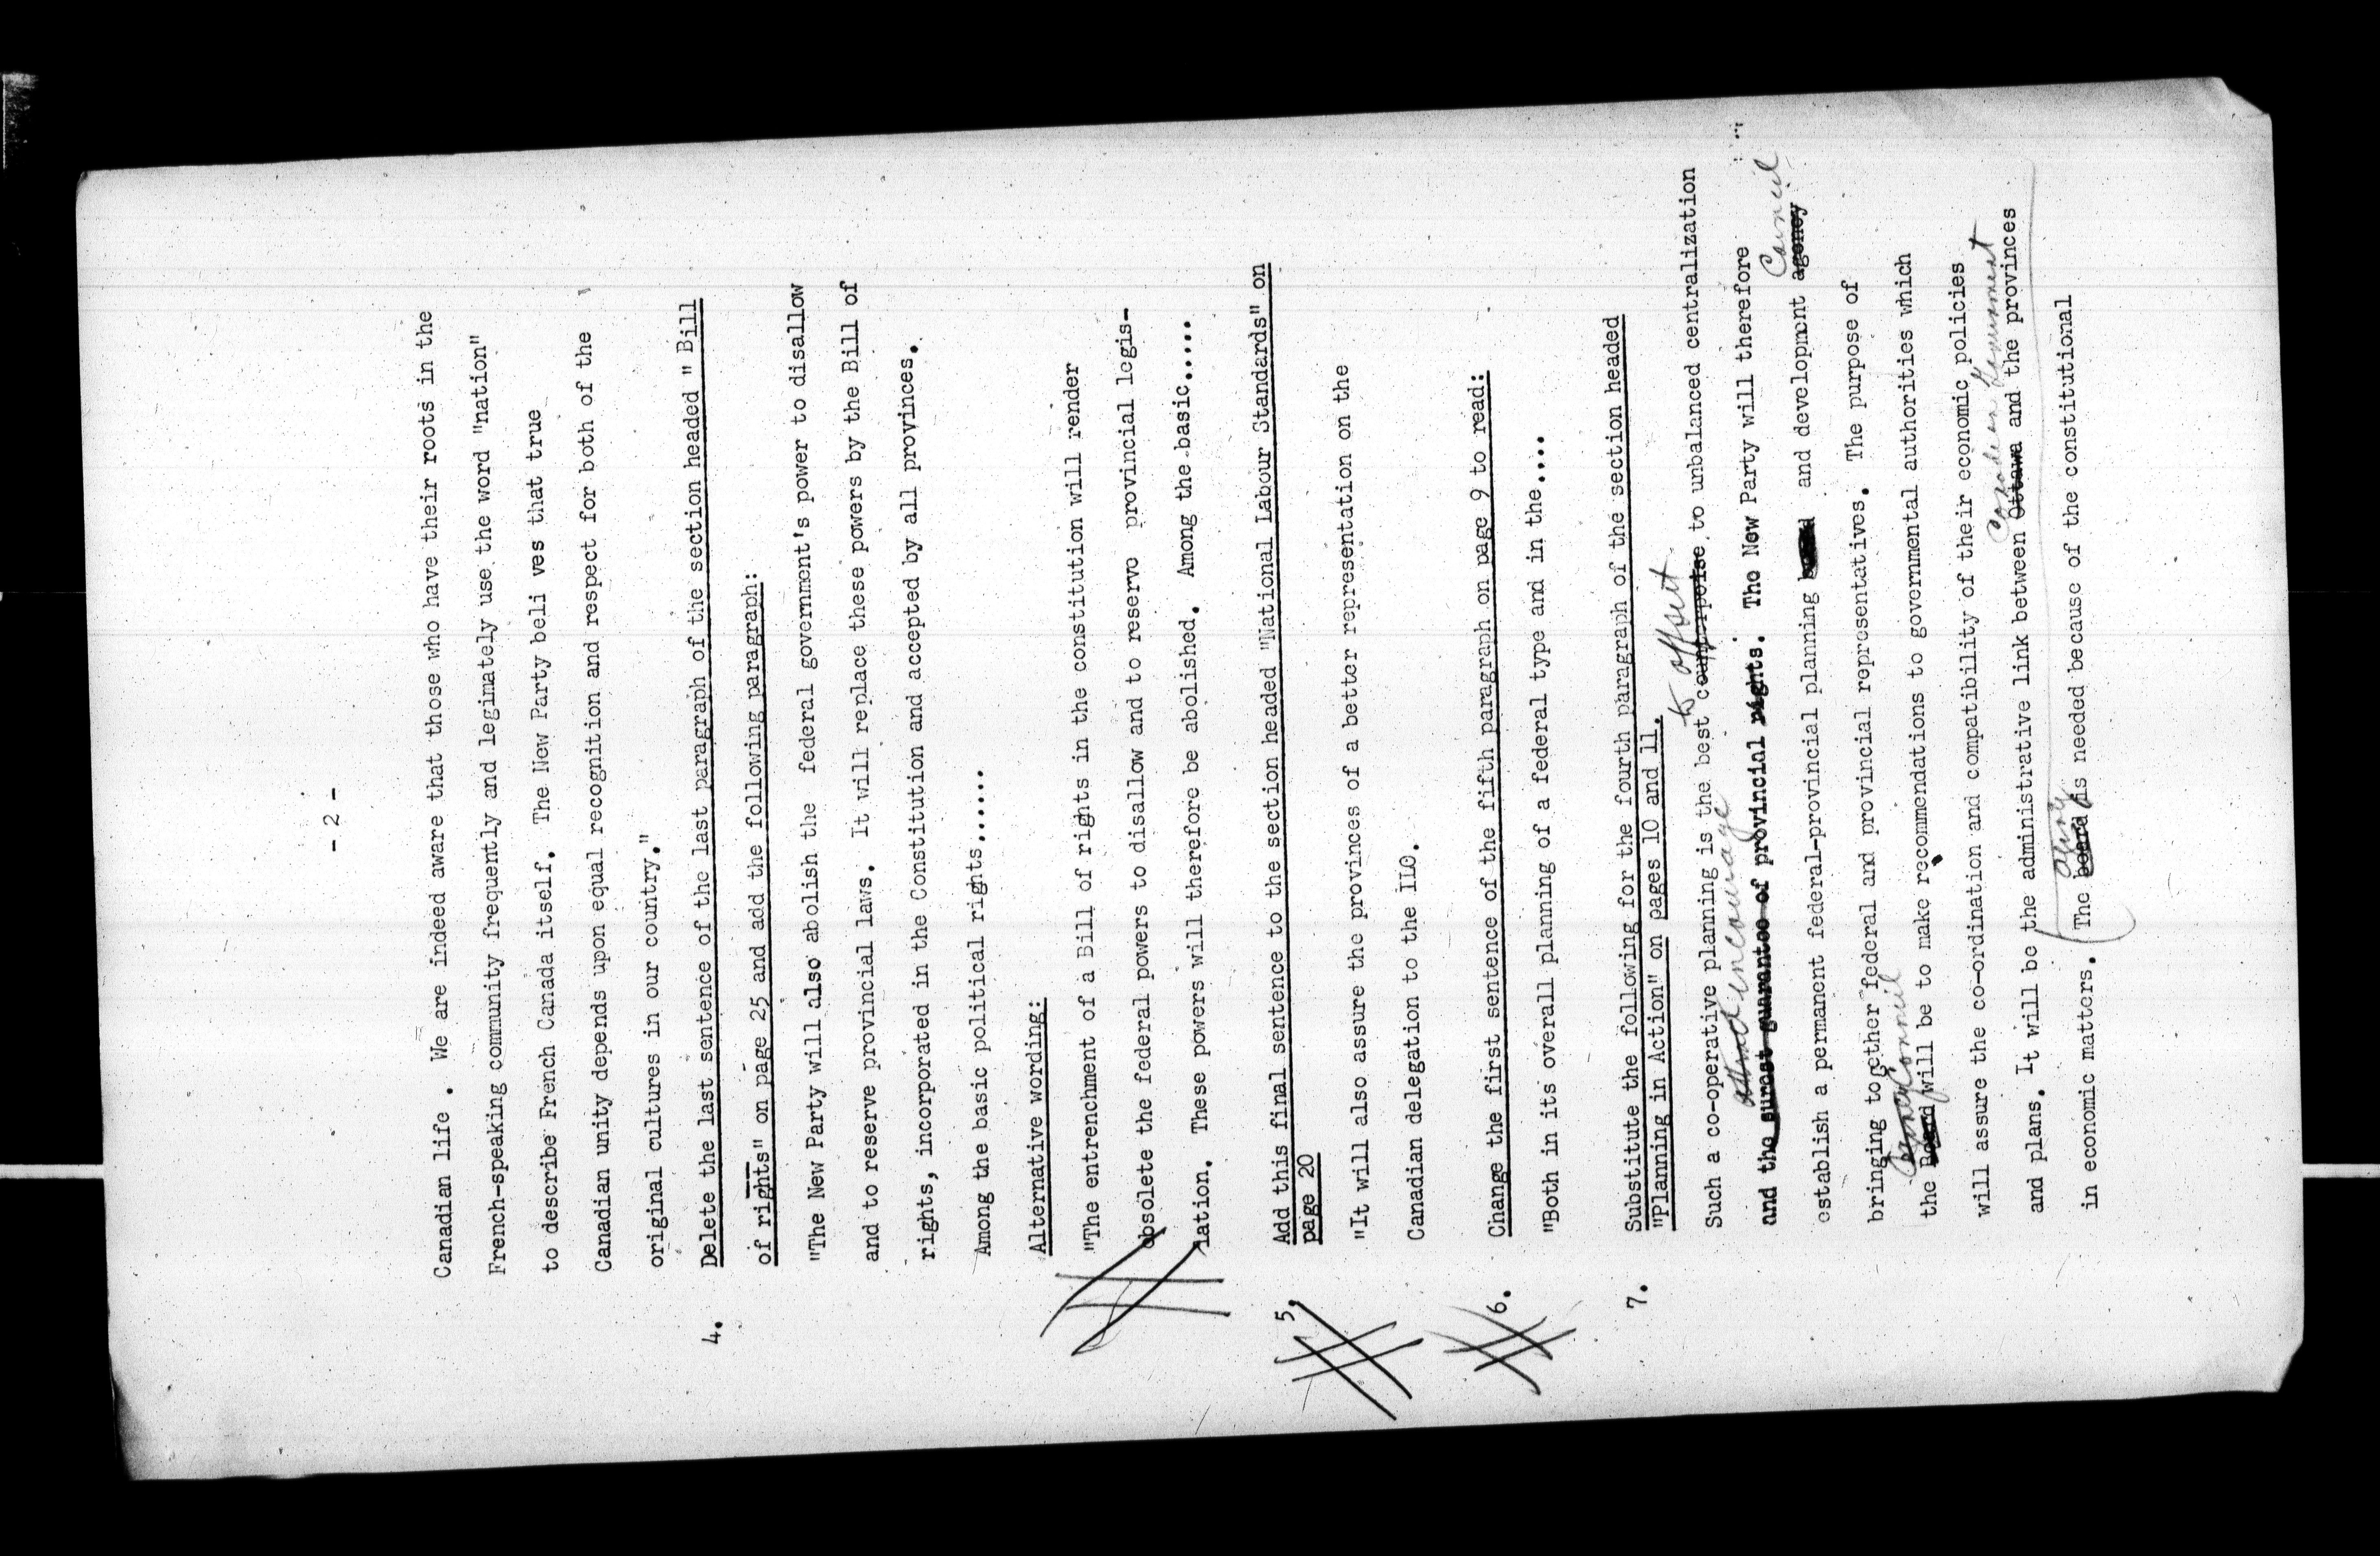 - 2 -
Canadian life . We are indeed aware that those who have their roots in the
French-speaking community frequently and legimately use the word "nation"
to describe French Canada itself. The New Party beli ves that true
Canadian unity depends upon equal recognition and respect for both of the
original cultures in our country."
4. Delete the last sentence of the last paragraph of the section headed " Bill
of rights" on page 25 and add the following paragraph:
"The New Party will also abolish the federal government's power to disallow
and to reserve provincial laws. It will replace these powers by the Bill of
rights, incorporated in the Constitution and accepted by all provinces.
Among the basic political rights......
Alternative wording:
"The entrenchment of a Bill of rights in the constitution will render
obsolete the federal powers to disallow and to reserve provincial legis-
lation. These powers will therefore be abolished. Among the basic.....
5. Add this final sentence to the section headed "National Labour Standards" on
page 20
"It will also assure the provinces of a better representation on the
Canadian delegation to the ILO.
6. Change the first sentence of the fifth paragraph on page 9 to read:
"Both in its overall planning of a federal type and in the....
7. Substitute the following for the fourth paragraph of the section headed
"Planning in Action" on pages 10 and 11.
to offset
Such a co-operative planning is the best counterpoise to unbalanced centralization
and encourage
and the surest guarantee of provincial rights. The New Party will therefore
Council
establish a permanent federal-provincial planning and developmnt agency.
bringing together federal and provincial representatives. The purpose of
Council
the Board will be to make recommendations to governmental authorities which
will assure the co-ordination and compatibility of their economic policies
Canadian Government
and plans. It will be the administrative link between Ottawa and the provinces
agency
in economic matters. The board is needed because of the constitutional